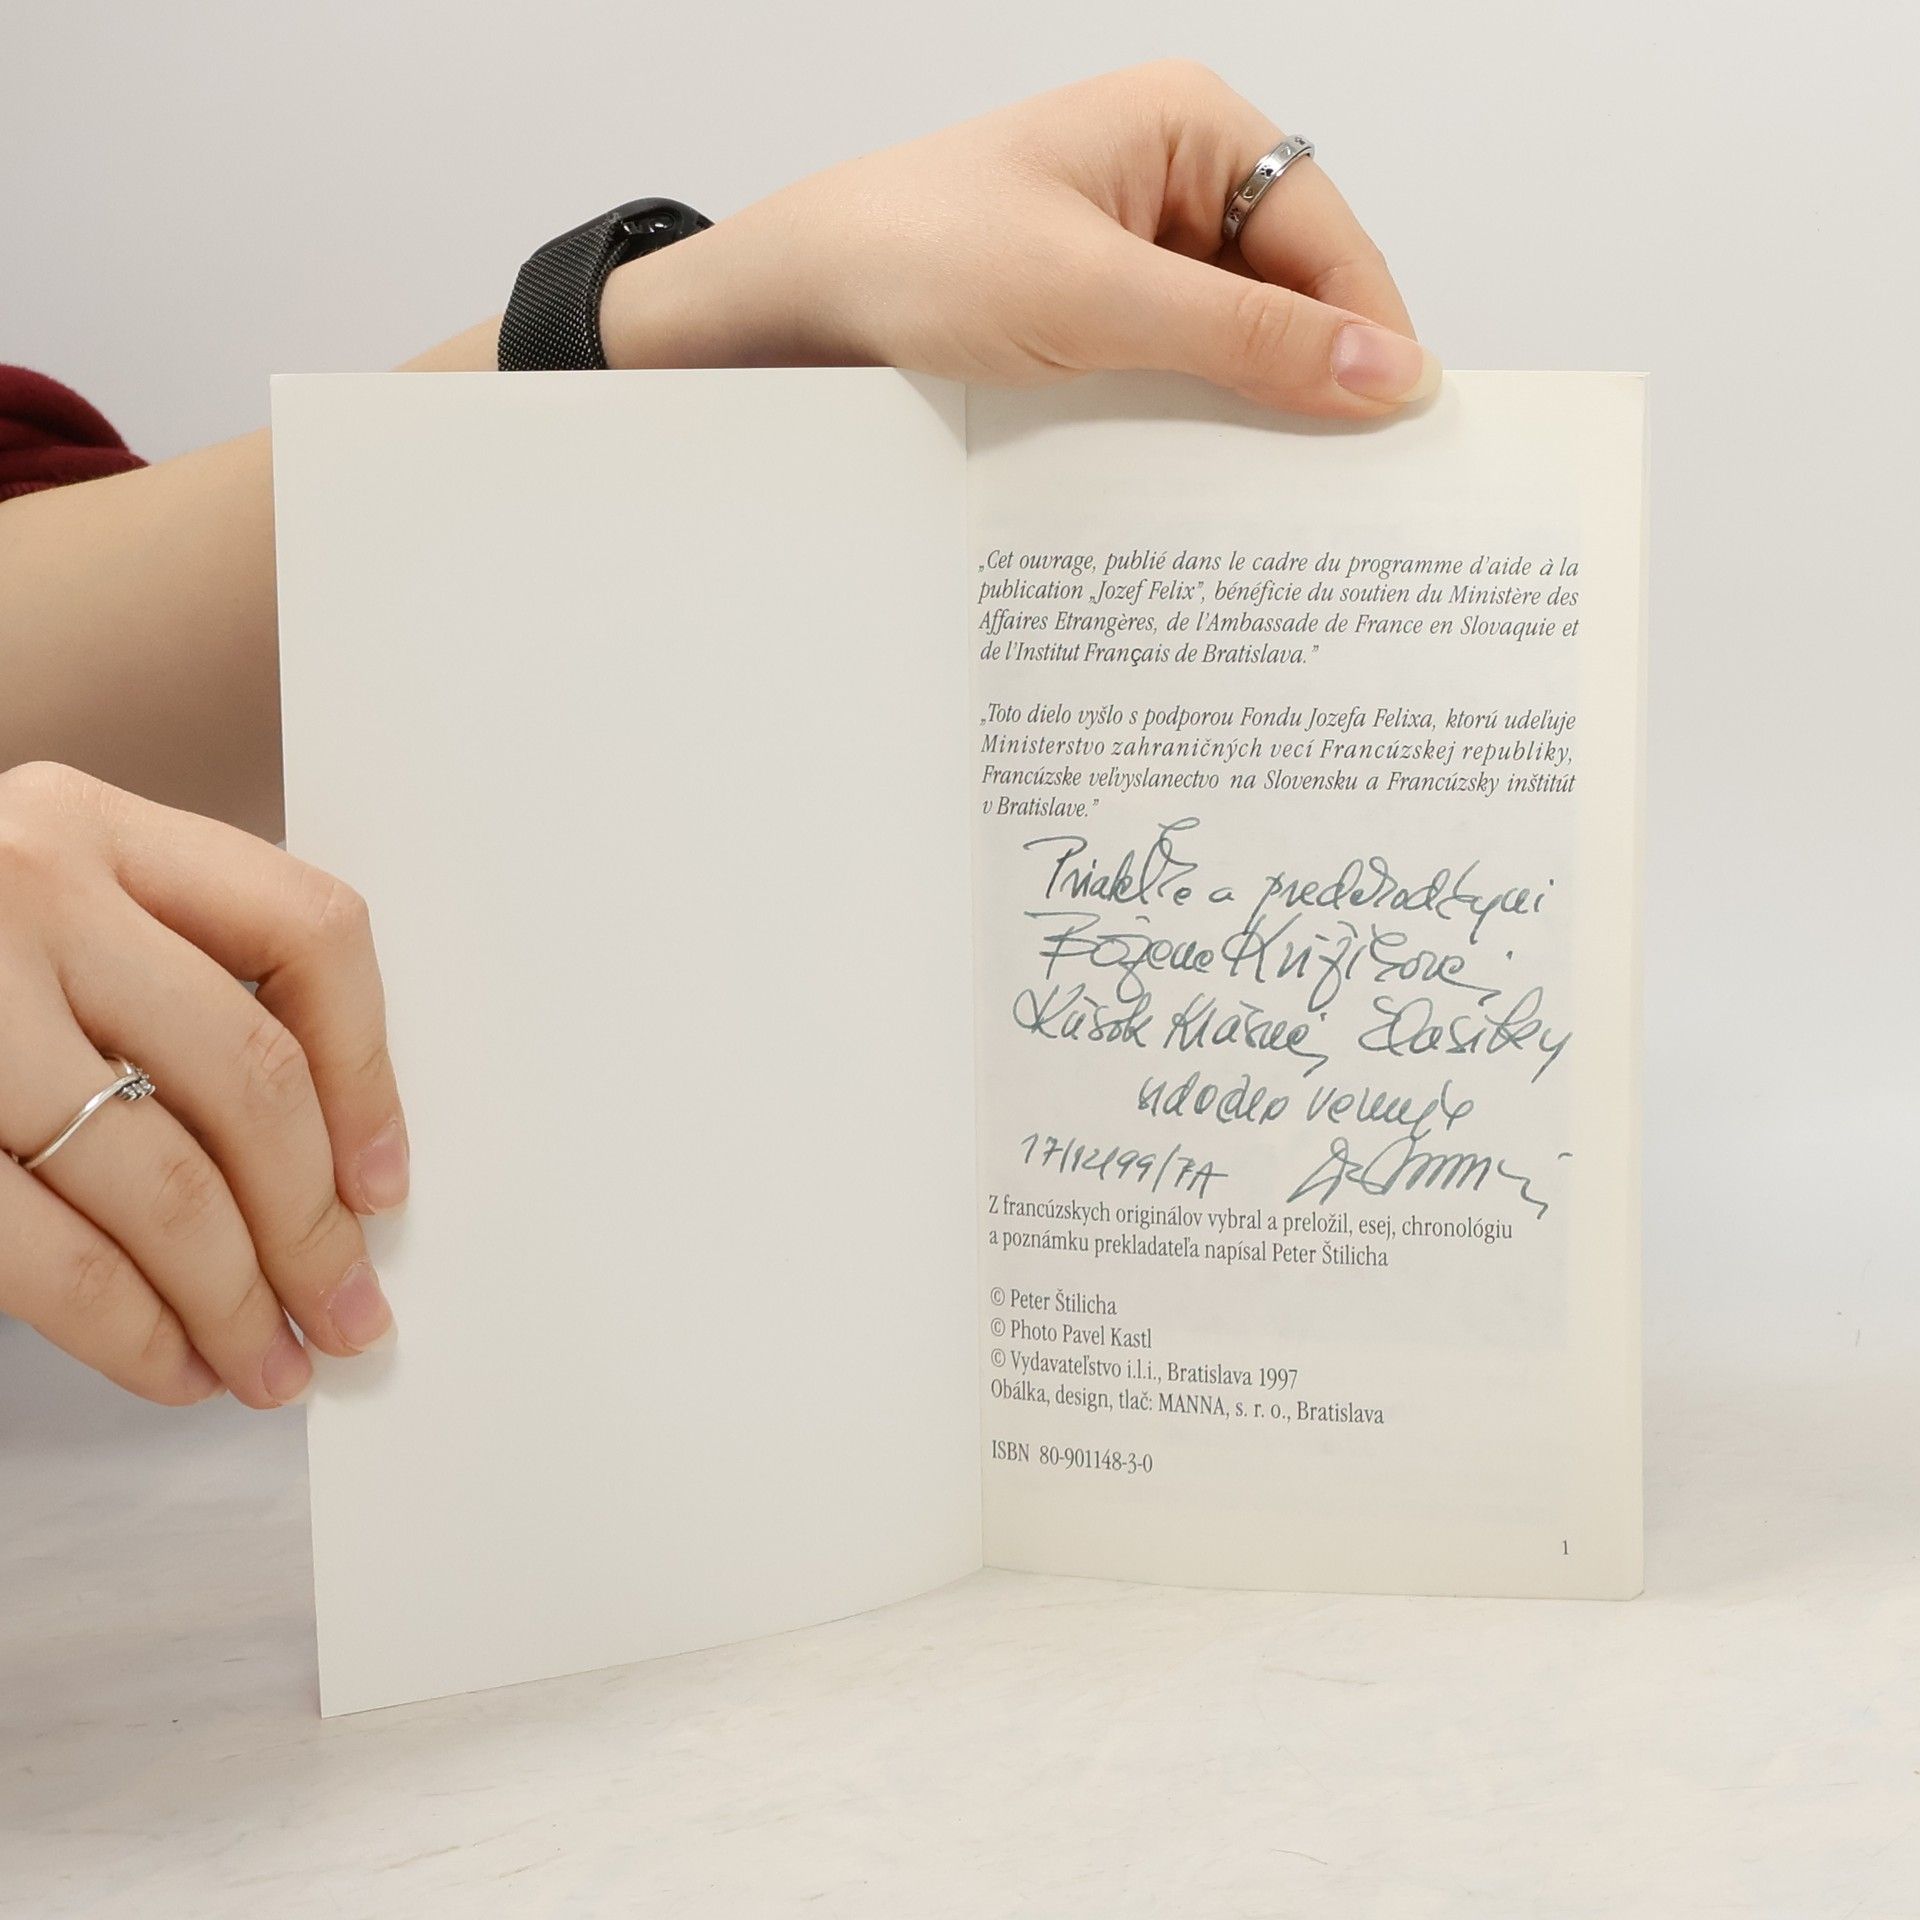 „Cet ouvrage, publié dans le cadre du programme d'aide à la
publication „Jozef Felix”, bénéficie du soutien du Ministère des
Affaires Etrangères, de l'Ambassade de France en Slovaquie et
de l'Institut Français de Bratislava.”
„Toto dielo vyšlo s podporou Fondu Jozefa Felixa, ktorú udeľuje
Ministerstvo zahraničných vecí Francúzskej republiky,
Francúzske veľvyslanectvo na Slovensku a Francúzsky inštitút
v Bratislave.”
a
Kúsok krásnej
venuje
17/12/99/
Z francúzskych originálov vybral a preložil, esej, chronológiu
a poznámku prekladateľa napísal Peter Štilicha
© Peter Štilicha
© Photo Pavel Kastl
© Vydavateľstvo i.l.i., Bratislava 1997
Obálka, design, tlač: MANNA, s. r. o., Bratislava
ISBN 80-901148-3-0
1